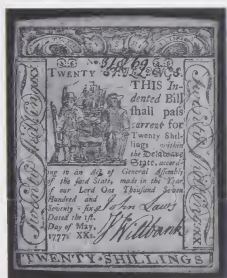 No. 51869
TWENTY SHILLINGS.
THIS In-
dented Bill
shall pass
current for
Twenty Shil-
lings within
the Delaware
State, accord-
ing to an Act of General Assembly
of the said State, made in the Year
of our Lord One Thousand Seven
Hundred and
Seventy-six
Dated the 1st.
Day of May,
1777. XXs.
John Laws
J Wiltbank
Twenty Shillings
TWENTY-SHILLINGS